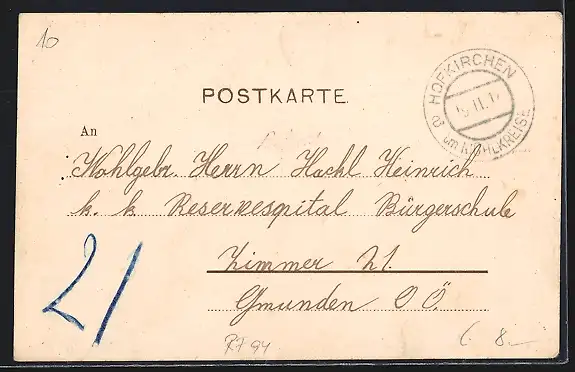 10
POSTKARTE
HOFKIRCHEN
im MÜHLKREISE
An
Wohlgebr. Herrn Hachl Heinrich
k. k. Reservespital Bürgerschule
Zimmer 21.
Gmunden OÖ.
21
8.-